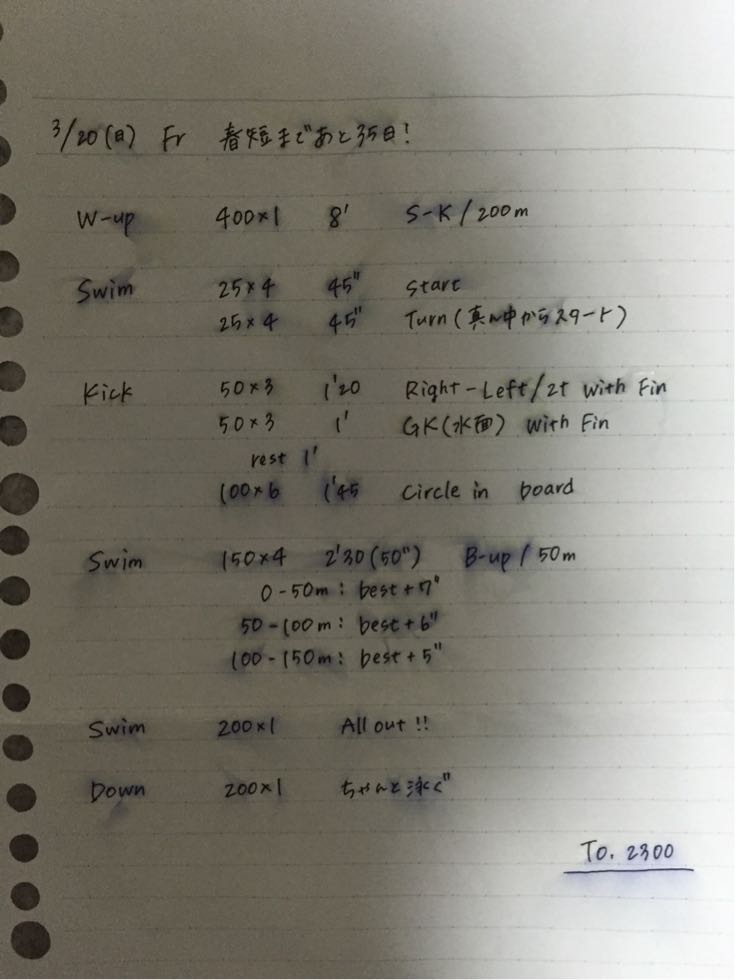 3/20(日) Fr 春短まであと35日!
W-up 400×1 8' S-K/200m
Swim 25×4 45" Start
25×4 45" Turn(真ん中からスタート)
Kick 50×3 1'20 Right-Left/2t with Fin
50×3 1' GK(水面) with Fin
rest 1'
100×6 1'45 Circle in board
Swim 150×4 2'30(50") B-up/50m
0-50m: best+7"
50-100m: best+6"
100-150m: best+5"
Swim 200×1 All out!!
Down 200×1 ちゃんと泳ぐ
To. 2300